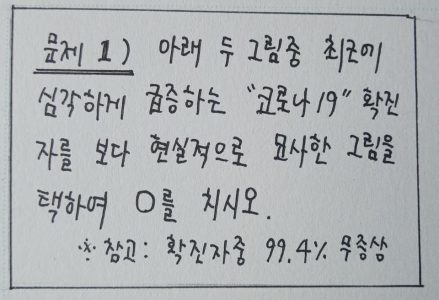 문제 1) 아래 두 그림중 최근에
심각하게 급증하는 "코로나19" 확진
자를 보다 현실적으로 묘사한 그림을
택하여 O를 치시오.
※ 참고: 확진자중 99.4% 무증상